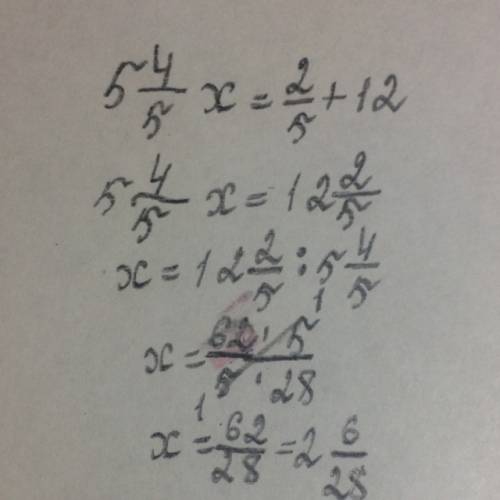 5 4/5 x = 2/5 + 12
5 4/5 x = 12 2/5
x = 12 2/5 : 5 4/5
x = 62 · 5 1 / 5 · 28
1
x = 62/28 = 2 6/28